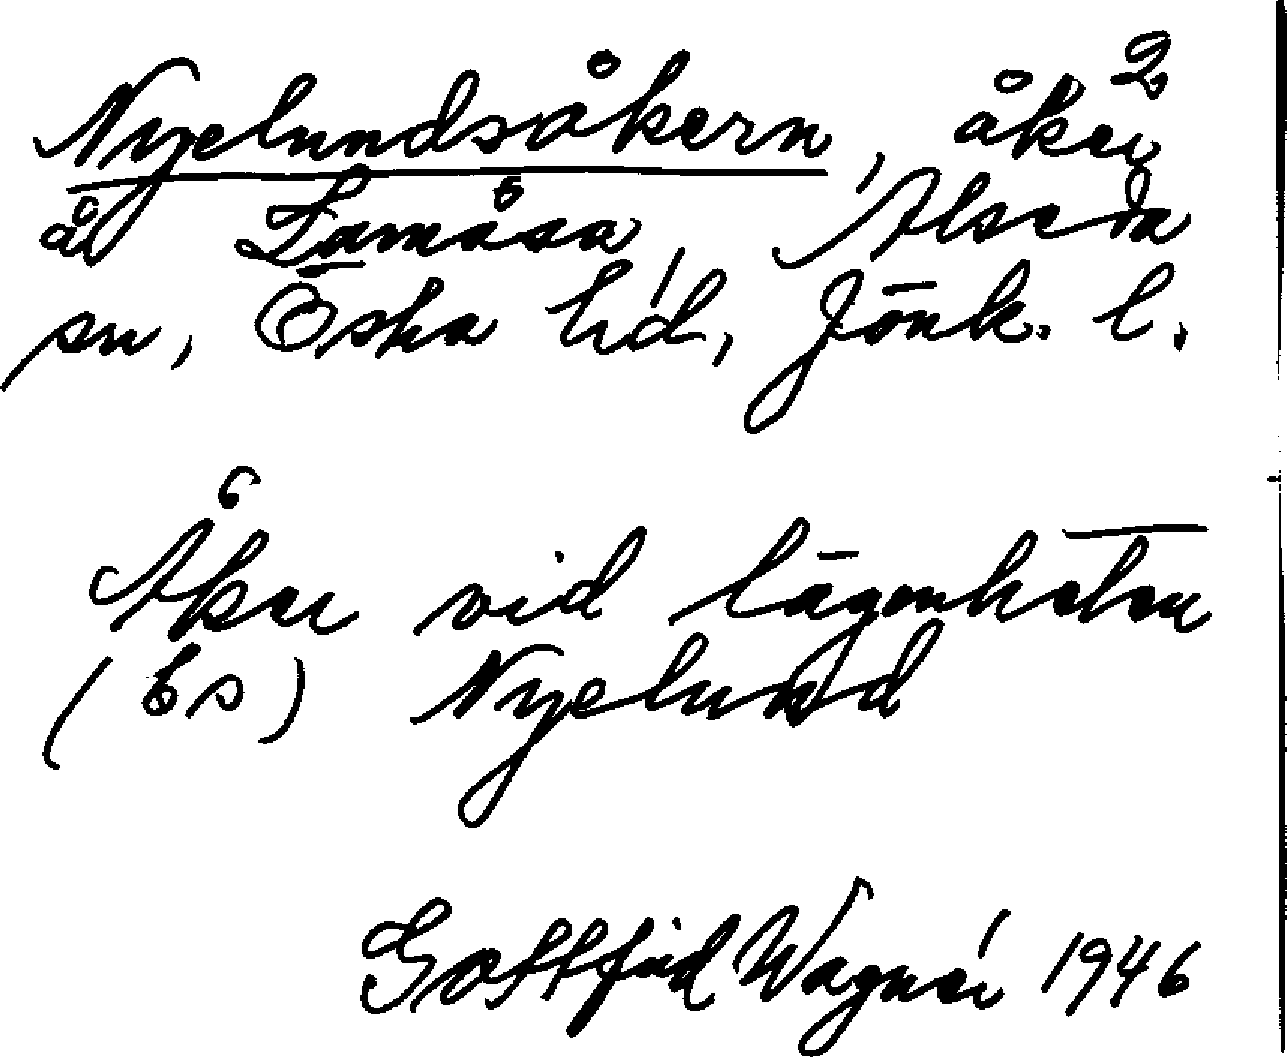 Nyelundsåkern, åker 2
å Lamåsa, Alseda
sn, Östra hd, Jönk. l.
Åker vid lägenheten
(bs) Nyelund
Gottfrid Wagnér 1946